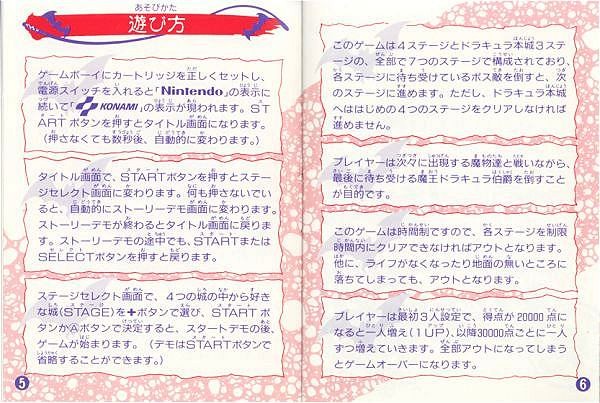 あそびかた
遊び方
ゲームボーイにカートリッジを正しくセットし、
電源スイッチを入れると「Nintendo」の表示に
続いて「KONAMI」の表示が現われます。ST
ARTボタンを押すとタイトル画面になります。
(押さなくても数秒後、自動的に変わります。)
タイトル画面で、STARTボタンを押すとステー
ジセレクト画面に変わります。何も押さないでいる
と、自動的にストーリーデモ画面に変わります。
ストーリーデモが終わるとタイトル画面に戻りま
す。ストーリーデモの途中でも、STARTまたは
SELECTボタンを押すと戻ります。
ステージセレクト画面で、4つの城の中から好き
な城(STAGE)を✚ボタンで選び、STARTボ
タンかⒶボタンで決定すると、スタートデモの後、
ゲームが始まります。(デモはSTARTボタンで
省略することができます。)
5
このゲームは4ステージとドラキュラ本城3ステ
ージの、全部で7つのステージで構成されており、
各ステージに待ち受けているボス敵を倒すと、次
のステージに進めます。ただし、ドラキュラ本城
へははじめの4つのステージをクリアしなければ
進めません。
プレイヤーは次々に出現する魔物達と戦いながら、
最後に待ち受ける魔王ドラキュラ伯爵を倒すこと
が目的です。
このゲームは時間制ですので、各ステージを制限
時間内にクリアできなければアウトとなります。
他に、ライフがなくなったり地面の無いところに
落ちてしまっても、アウトとなります。
プレイヤーは最初3人設定で、得点が20000点に
なると一人増え(1UP)、以降30000点ごとに一人
ずつ増えていきます。全部アウトになってしまう
とゲームオーバーになります。
6